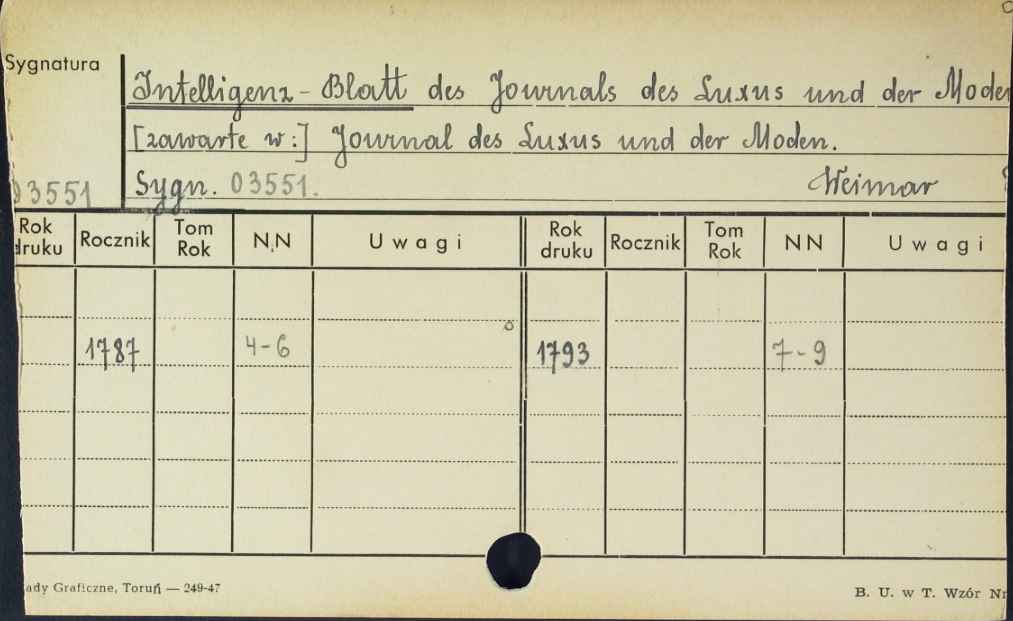 Sygnatura
Intelligenz-Blatt des Journals des Luxus und der Moden
[zawarte w:] Journal des Luxus und der Moden.
03551 Sygn. 03551. Weimar
Rok druku Rocznik Tom Rok N.N Uwagi Rok druku Rocznik Tom Rok NN Uwagi
1787 4-6 1793 7-9
ady Graficzne, Toruń — 249-47 B. U. w T. Wzór Nr